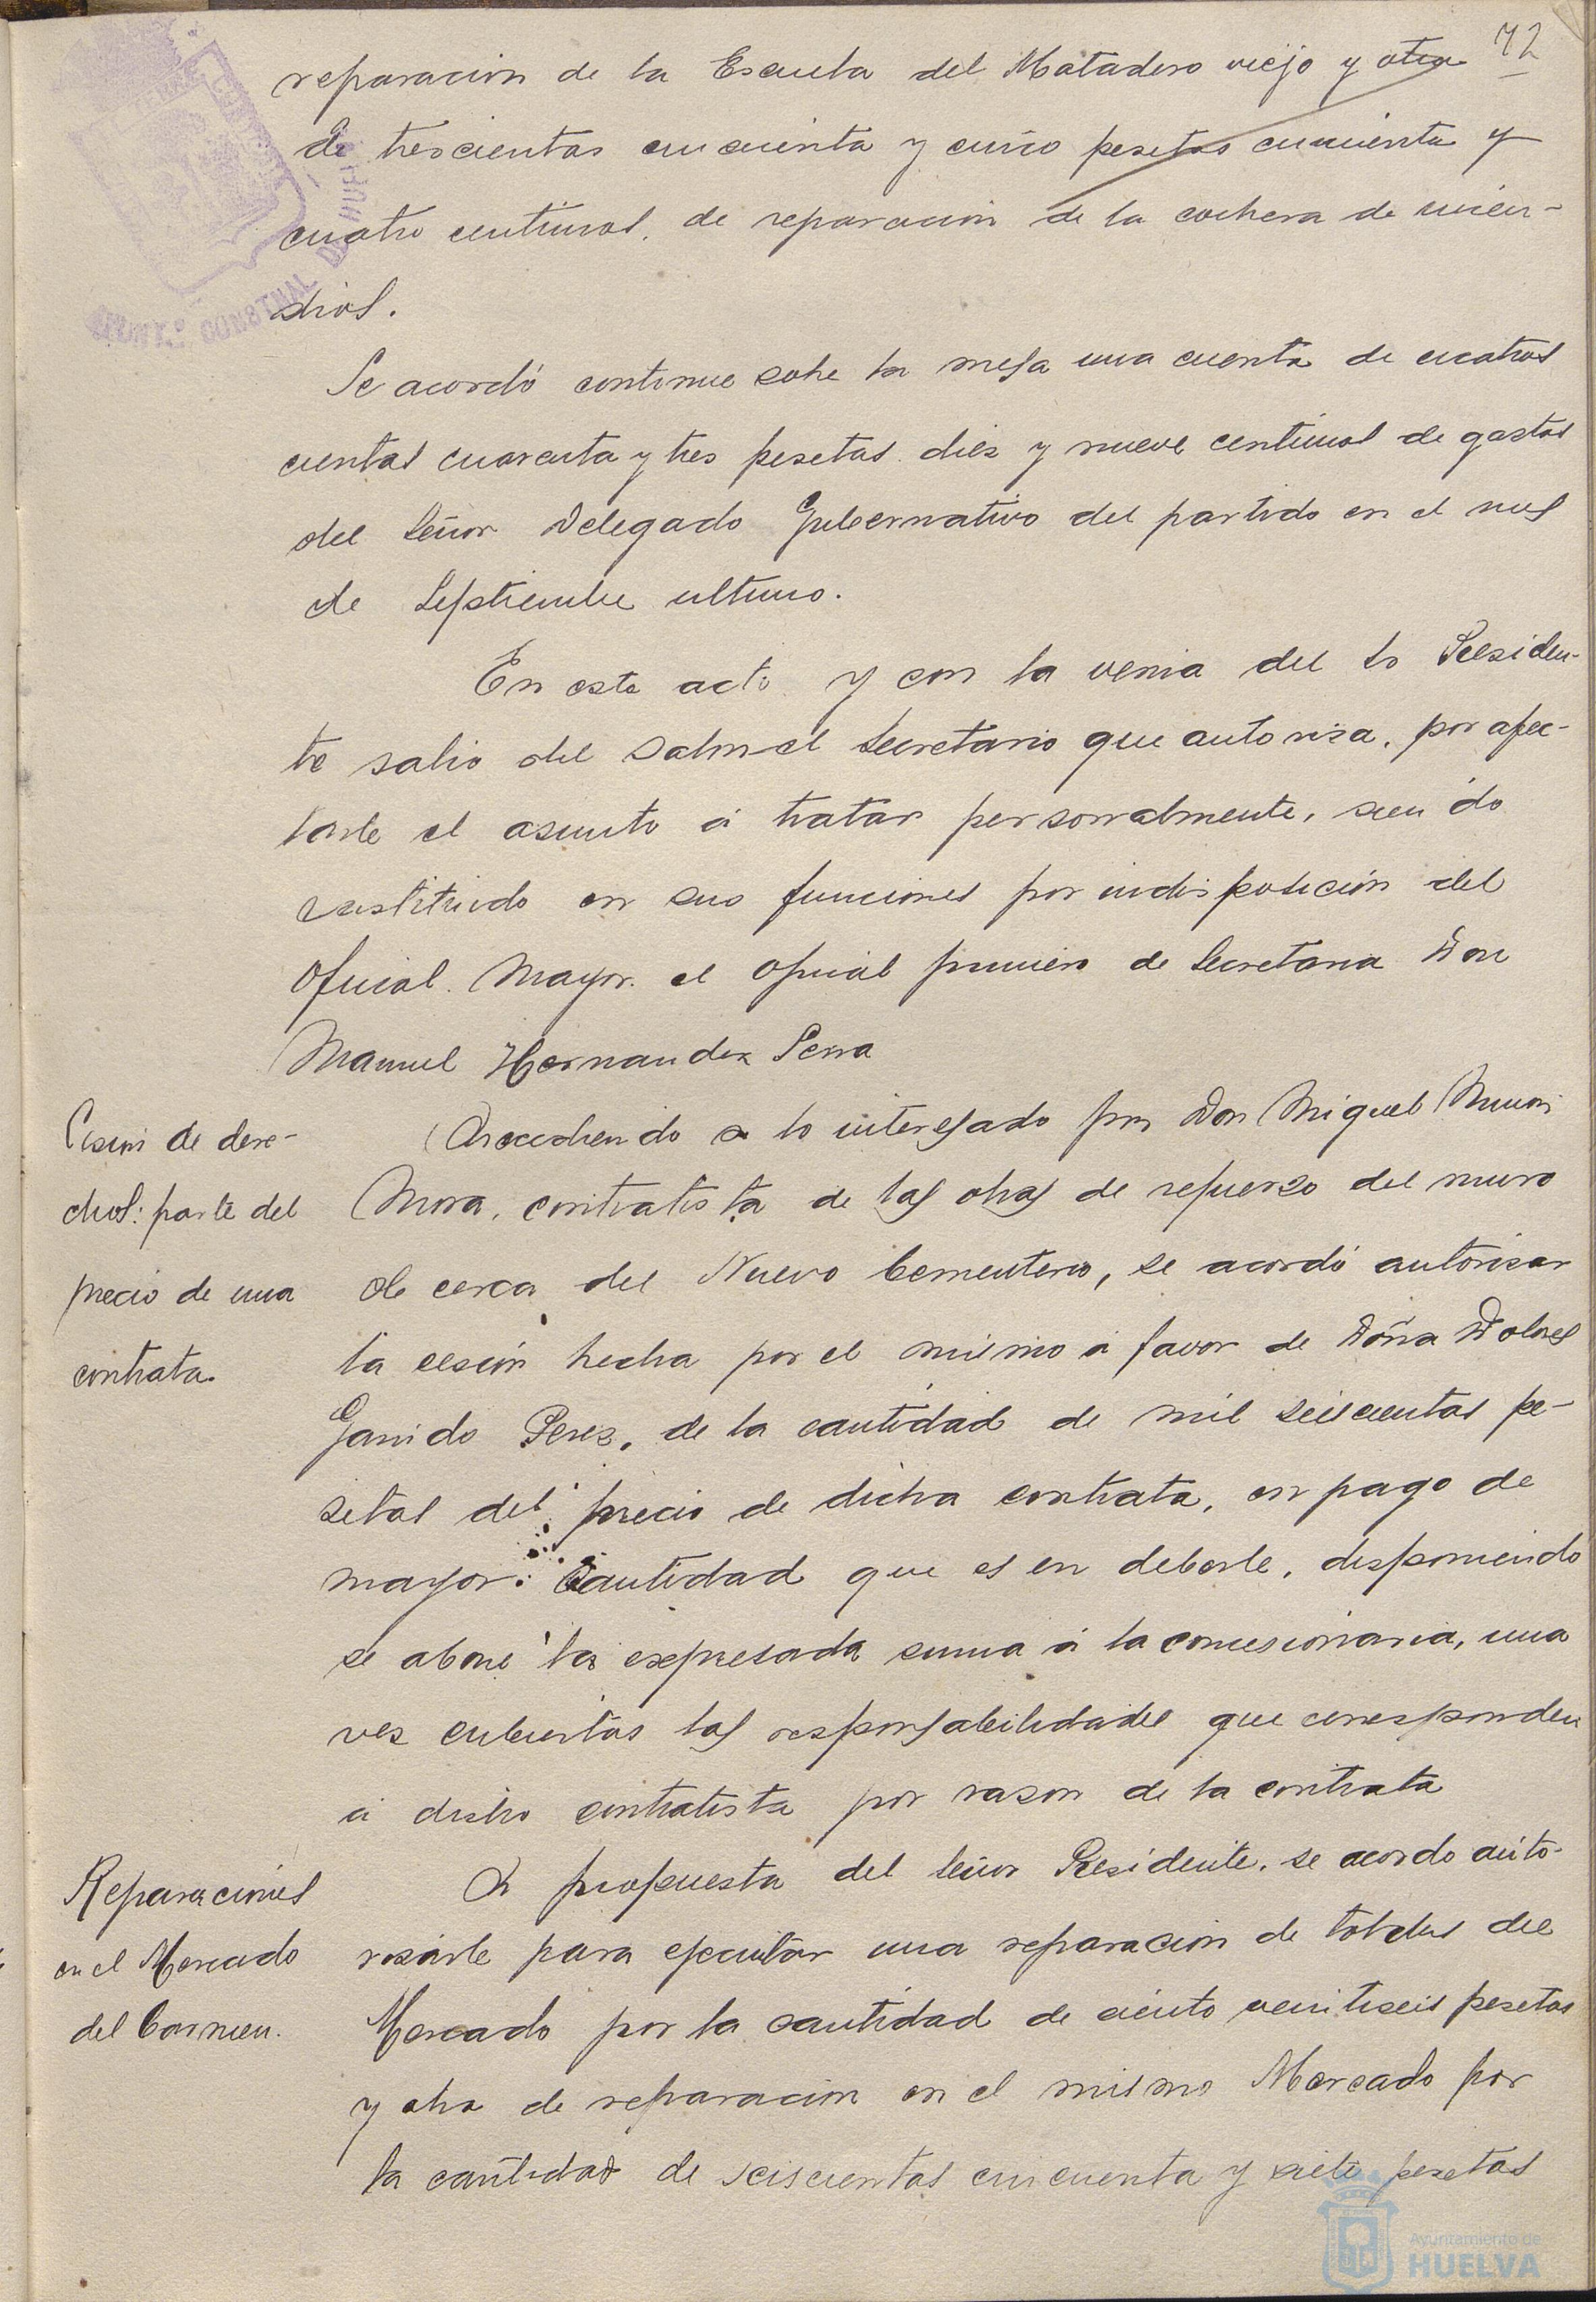 72
reparacion de la Escuela del Matadero viejo y otra
de trescientas cincuenta y cinco pesetas cincuenta y
cuatro centimos, de reparacion de la cochera de incen-
dios.
Se acordó continue sobe la mesa una cuenta de cuatros
cientas cuarenta y tres pesetas diez y nueve centimos de gastos
del Señor Delegado Gubernativo del partido en el mes
de Septiembre ultimo.
En este acto y con la venia del Sr Presiden-
te salio del Salon el Secretario que autoriza, por afec-
tarle el asunto á tratar personalmente, siendo
sustituido en sus funciones por indisposición del
Oficial Mayor el oficial primero de Secretaria Don
Manuel Hernandez Serra
Cesion de dere-
chos: parte del
precio de una
contrata.
Accediendo a lo interesado por Don Miguel
Mora, contratista de las obras de refuerzo del muro
de cerca del Nuevo Cementerio, se acordó autorizar
la cesión hecha por el mismo á favor de Doña Dolores
Garrido Perez, de la cantidad de mil seiscientas pe-
setas del precio de dicha contrata, en pago de
mayor cantidad que es en deberle, disponiendo
se abone la expresada suma á la concesionaria, una
vez cubiertas las responsabilidades que corresponden
á dicho contratista por razon de la contrata
Reparaciones
en el Mercado
del Carmen.
A propuesta del Señor Presidente, se acordo auto-
rizarle para ejecutar una reparacion de toldos del
Mercado por la cantidad de ciento veintiseis pesetas
y otra de reparacion en el mismo Mercado por
la cantidad de seiscientas cincuenta y siete pesetas
AYUNT.º CONSTNAL DE HUELVA
Ayuntamiento de
HUELVA